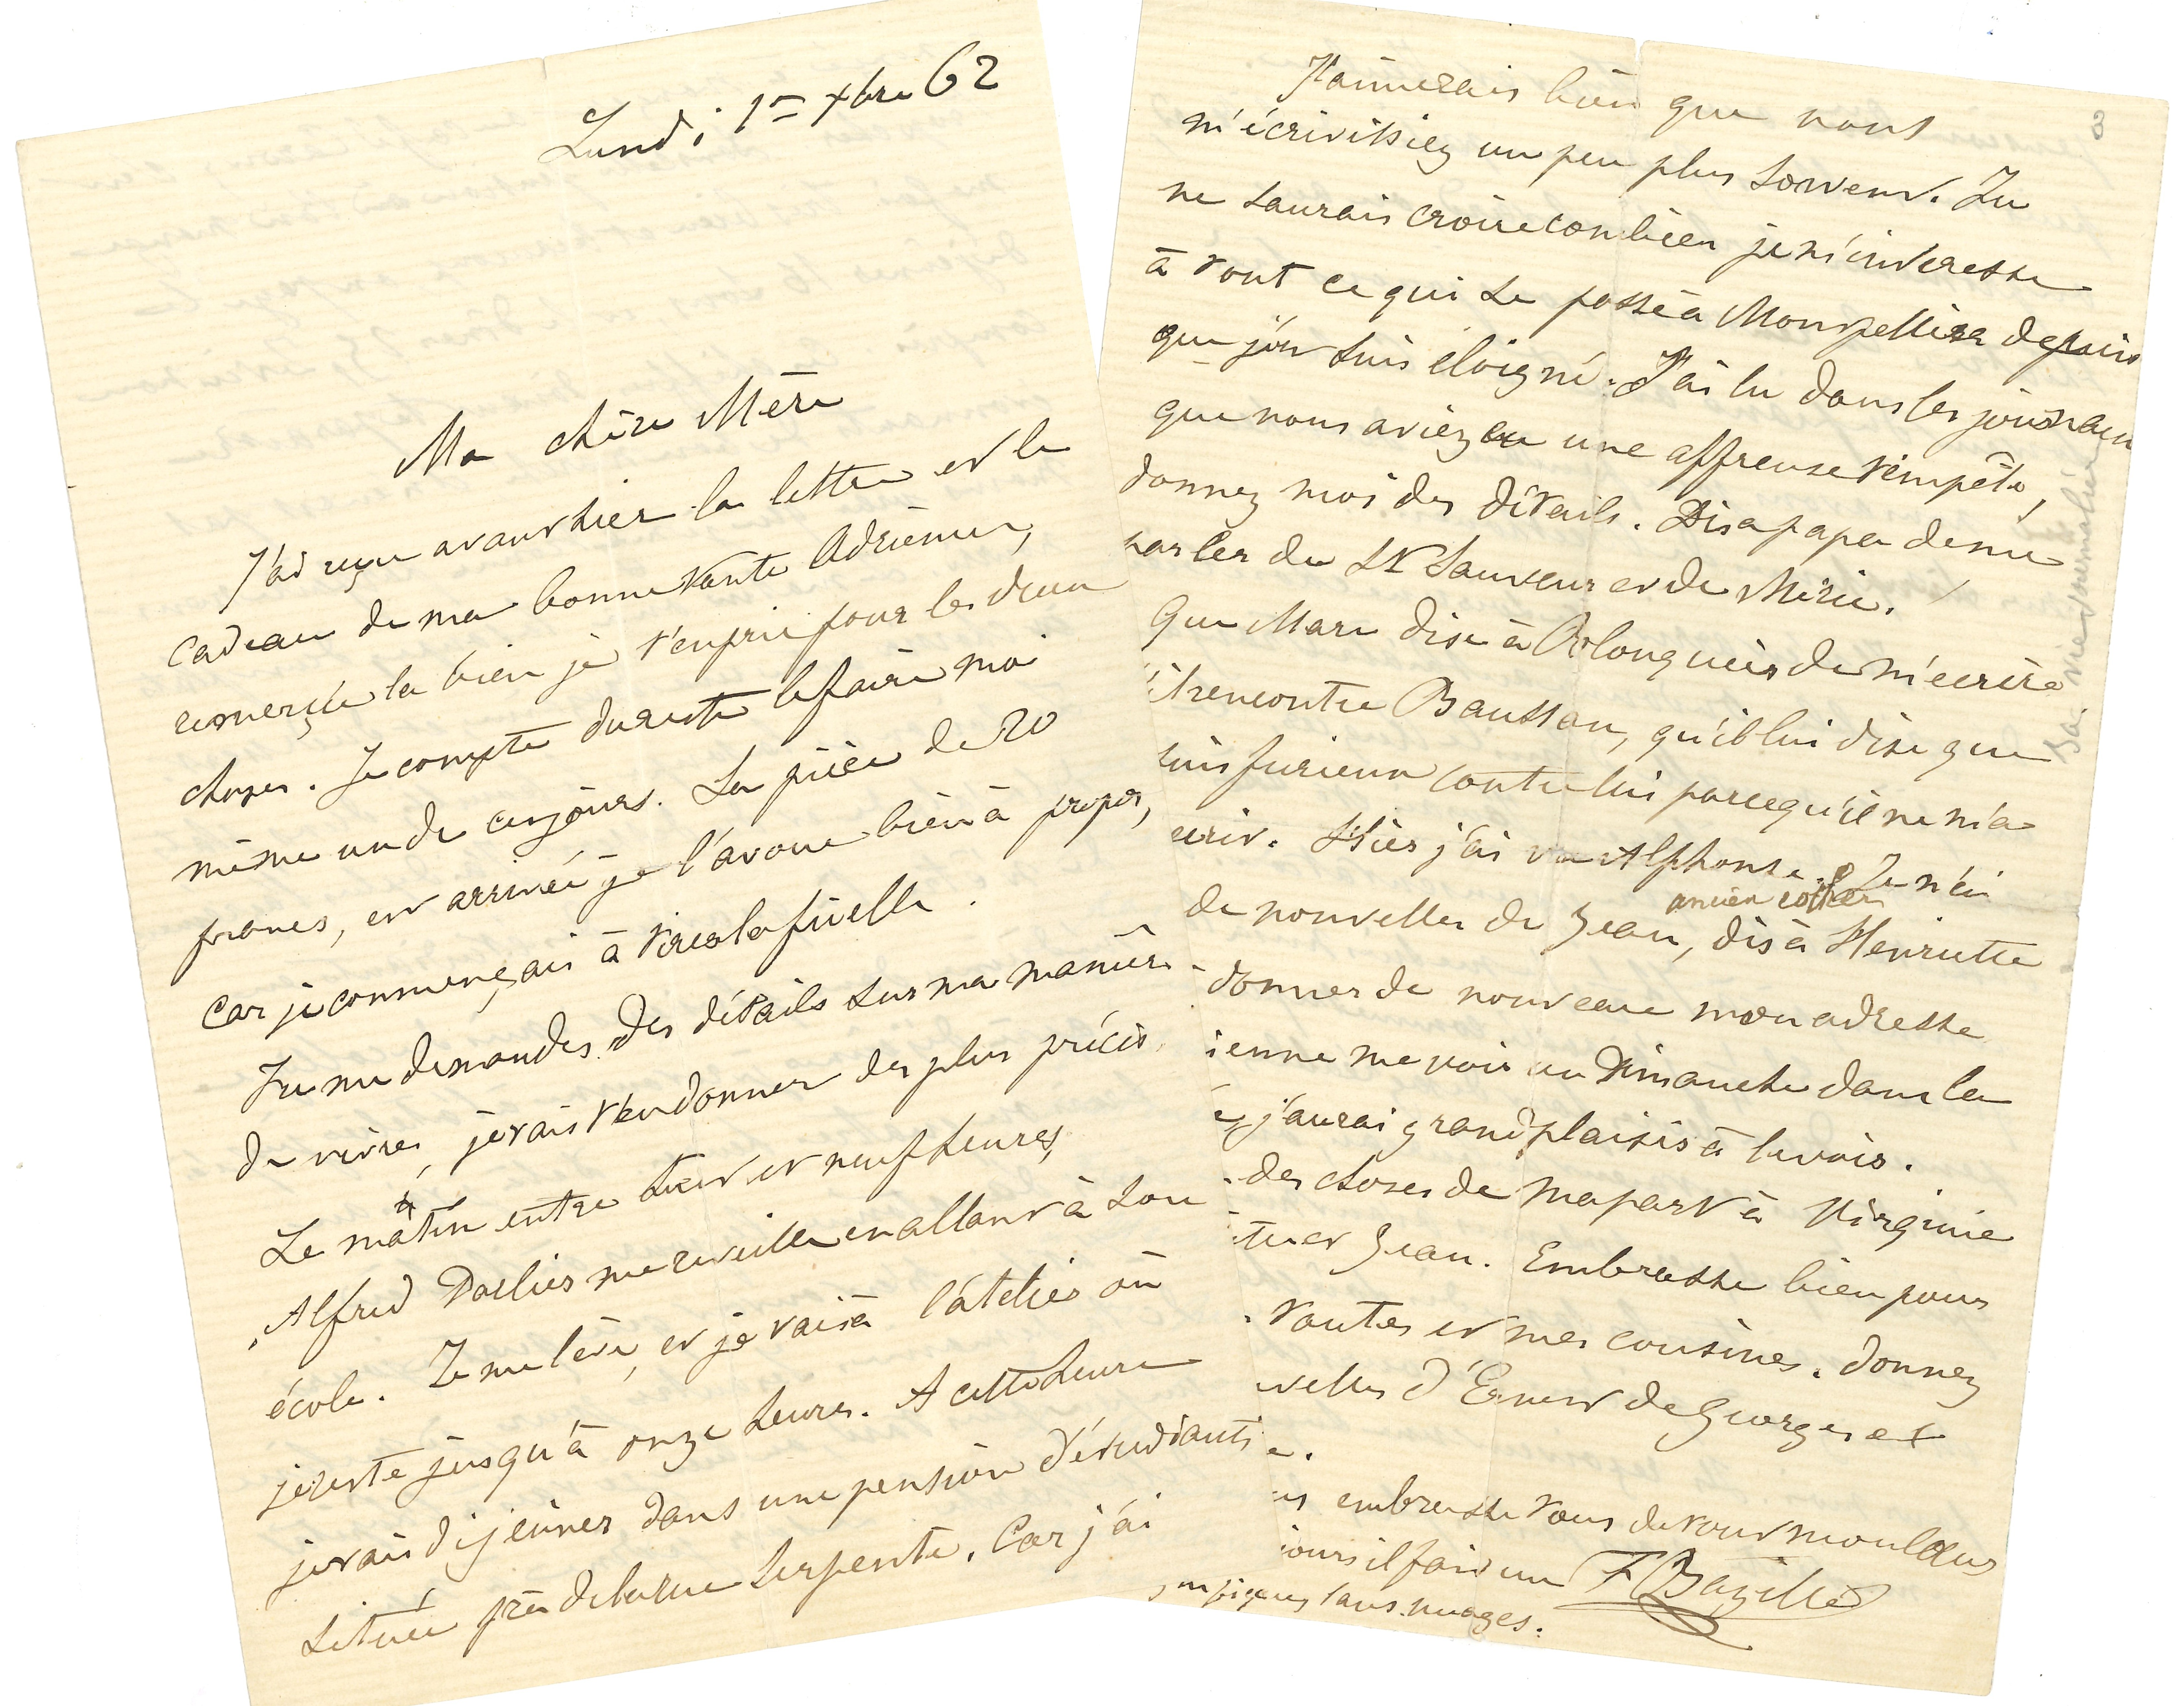 Lundi 1er Xbre 62
Ma chère Mère
J'ai reçu avant hier la lettre et le
cadeau de ma bonne tante Adrienne,
remercie la bien je t'en prie pour les deux
choses. Je compte du reste le faire moi
même un de ces jours. La pièce de 20
francs, est arrivée je l'avoue bien à propos,
car je commençais à tirer la ficelle.
Tu me demandes des détails sur ma manière
de vivre, je vais t'en donner des plus précis.
Le matin entre huit et neuf heures,
Alfred me réveille en allant à son
école. Je me lève, et je vais à l'atelier où
je reste jusqu'à onze heures. A cette heure
je vais déjeuner dans une pension d'étudiants
située près de la rue Serpente. Car j'ai
3
J'aimerais bien que vous
m'écrivissiez un peu plus souvent. Tu
ne saurais croire combien je m'intéresse
à tout ce qui se passe à Montpellier depuis
que j'en suis éloigné. J'ai lu dans les journaux
que vous aviez eu une affreuse tempête,
donnez moi des détails. Dis a papa de me
parler de St Sauveur et de Méric.
Que Marc dise à de m'ecrire
il rencontre Baussan, qu'il lui dise que
suis furieux contre lui parcequ'il ne m'a
ecrit. Hier j'ai vu Alphonse. Je n'ai
ancien cocher
de nouvelles de Jean, dis à Henriette
donner de nouveau mon adresse
ienne me voir un Dimanche dans la
j'aurai grand plaisir à le voir.
des choses de ma part à Virginie
et Jean. Embrasse bien pour
tantes et mes cousines. donnez
velles d'Ernest de Georges et
e.
us embrasse tous de tout mon cœur
jours il fait un F Bazille
sans nuages.